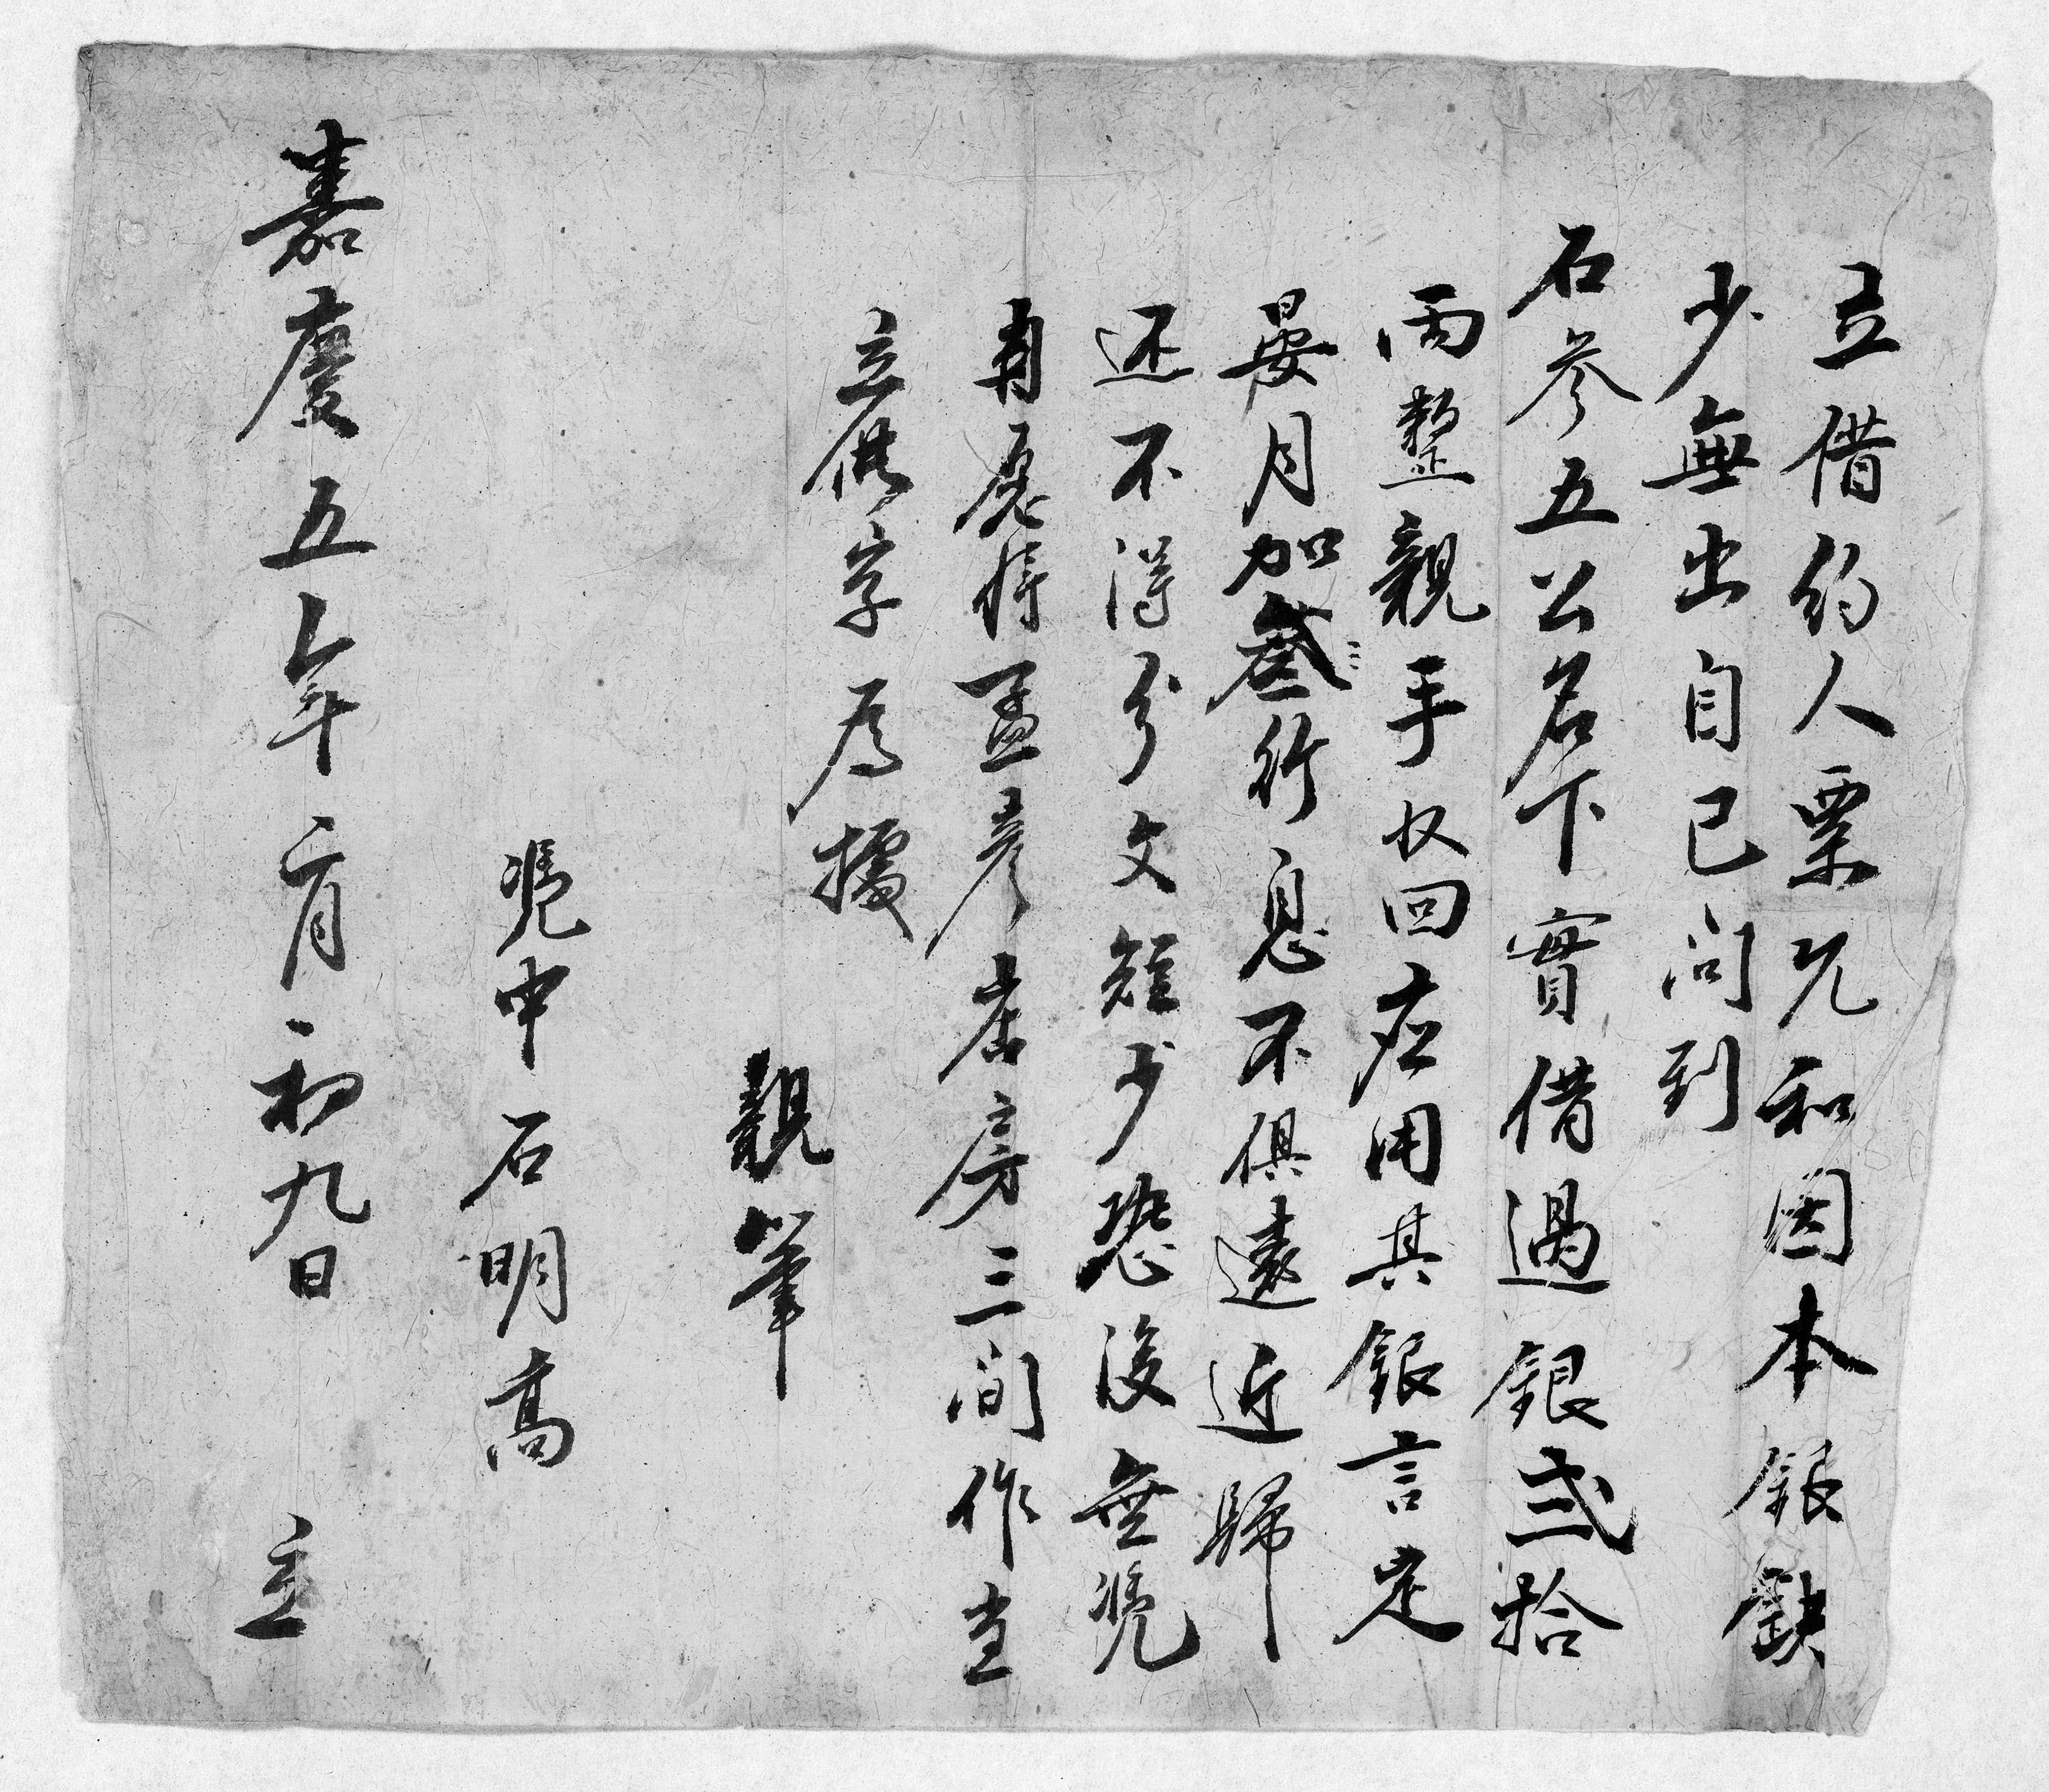 立借約人粟允和因本銀缺
少無出自己问到
石參五公名下實借過銀弍拾
兩整親手收回应用其銀言定
晏月加叁行息不俱遠近歸
还不得分文短少恐後無凴
自愿将孟彦居房三间作当
立借字為據
親筆
凴中石明高
嘉慶五年二月初九日立